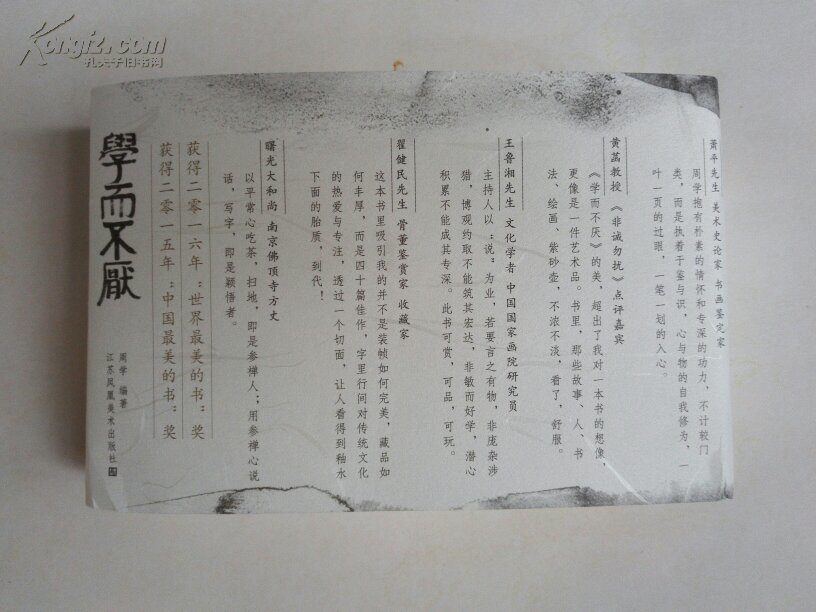 Kongfz.com
孔夫子旧书网
萧平先生 美术史论家 书画鉴定家
周学抱有朴素的情怀和专深的功力，不计较门
类，而是执着于鉴与识，心与物的自我修为，一
叶一页的过眼，一笔一划的入心。
黄菡教授 《非诚勿扰》点评嘉宾
《学而不厌》的美，超出了我对一本书的想像，
更像是一件艺术品。书里，那些故事、人、书
法、绘画、紫砂壶，不浓不淡，看了，舒服。
王鲁湘先生 文化学者 中国国家画院研究员
主持人以“说”为业，若要言之有物，非庞杂涉
猎，博观约取不能筑其宏达，非敏而好学，潜心
积累不能成其专深。此书可赏，可品，可玩。
翟健民先生 骨董鉴赏家 收藏家
这本书里吸引我的并不是装帧如何完美，藏品如
何丰厚，而是四十篇佳作，字里行间对传统文化
的热爱与专注，透过一个切面，让人看得到釉水
下面的胎质，到代！
曙光大和尚 南京佛顶寺方丈
以平常心吃茶，扫地，即是参禅人；用参禅心说
话，写字，即是颖悟者。
获得二零一六年“世界最美的书”奖
获得二零一五年“中国最美的书”奖
學而不厭
周学 编著
江苏凤凰美术出版社